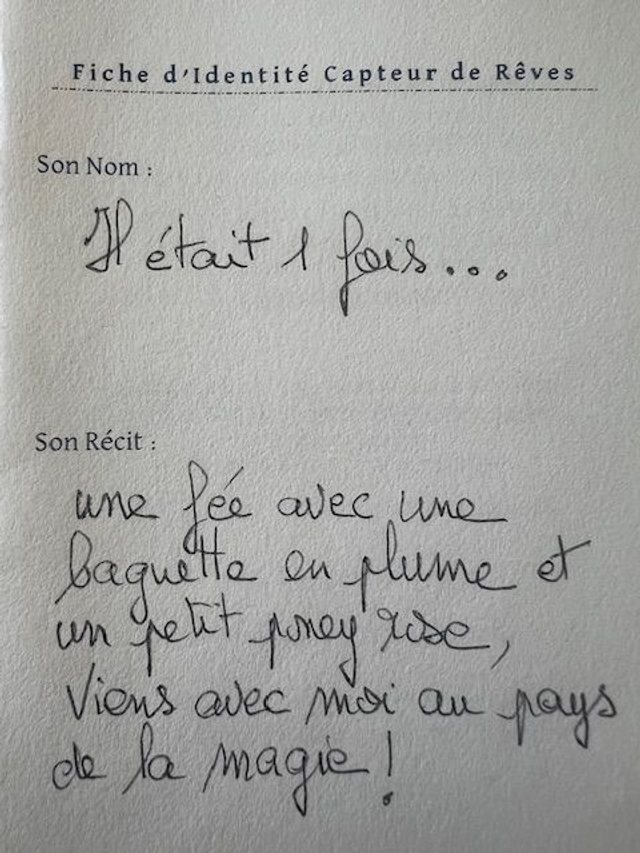 Fiche d'Identité Capteur de Rêves
Son Nom :
Il était 1 fois...
Son Récit :
une fée avec une
baguette en plume et
un petit poney rose,
Viens avec moi au pays
de la magie !